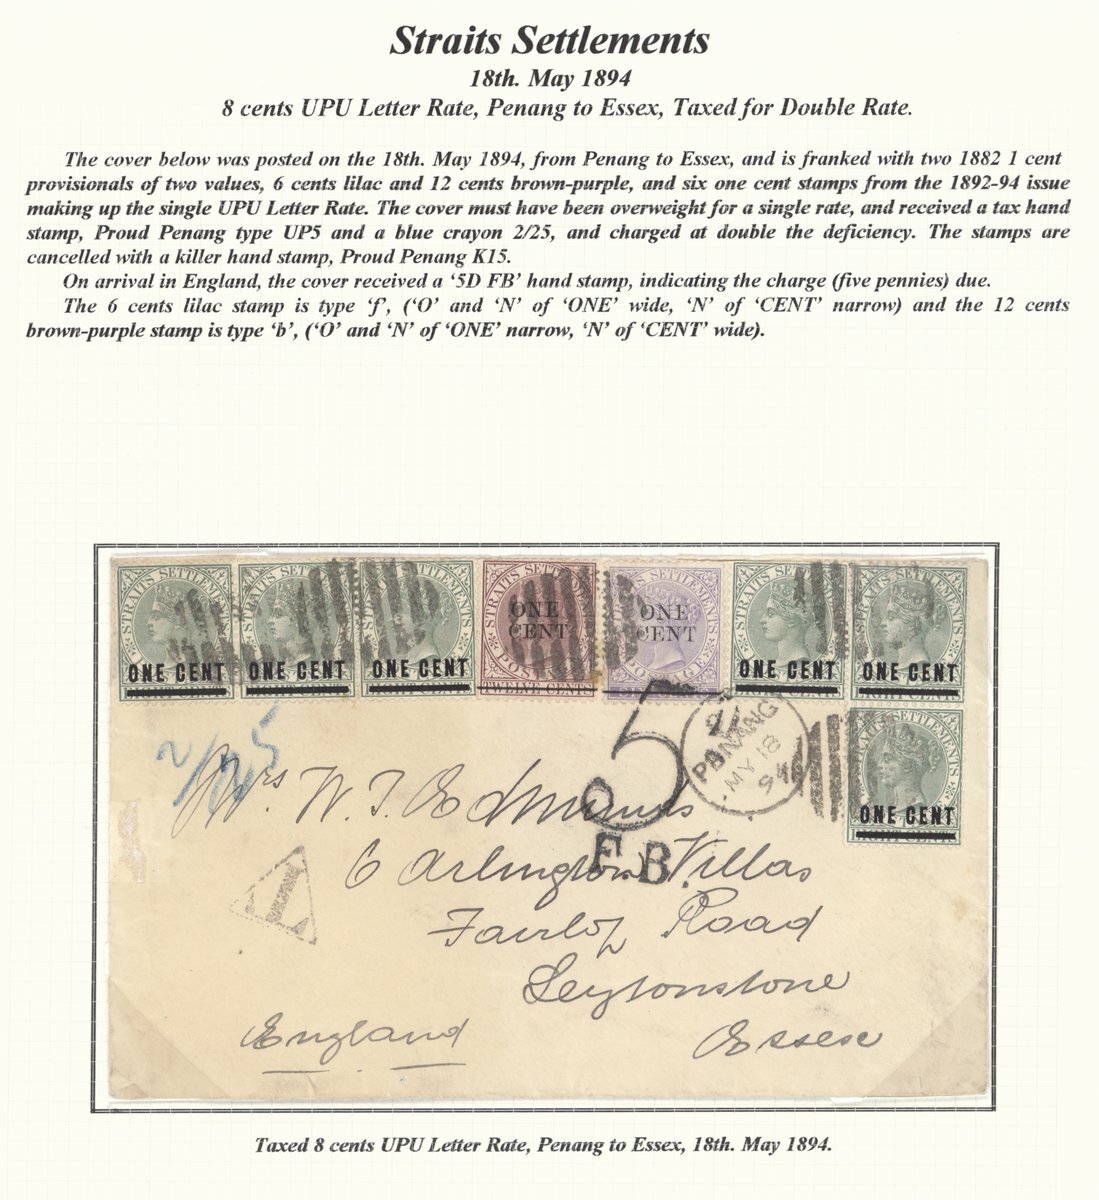 Straits Settlements
18th. May 1894
8 cents UPU Letter Rate, Penang to Essex, Taxed for Double Rate.
The cover below was posted on the 18th. May 1894, from Penang to Essex, and is franked with two 1882 1 cent
provisionals of two values, 6 cents lilac and 12 cents brown-purple, and six one cent stamps from the 1892-94 issue
making up the single UPU Letter Rate. The cover must have been overweight for a single rate, and received a tax hand
stamp, Proud Penang type UP5 and a blue crayon 2/25, and charged at double the deficiency. The stamps are
cancelled with a killer hand stamp, Proud Penang K15.
On arrival in England, the cover received a ‘5D FB’ hand stamp, indicating the charge (five pennies) due.
The 6 cents lilac stamp is type ‘f’, (‘O’ and ‘N’ of ‘ONE’ wide, ‘N’ of ‘CENT’ narrow) and the 12 cents
brown-purple stamp is type ‘b’, (‘O’ and ‘N’ of ‘ONE’ narrow, ‘N’ of ‘CENT’ wide).
STRAITS SETTLEMENTS
ONE CENT
STRAITS SETTLEMENTS
ONE CENT
STRAITS SETTLEMENTS
ONE CENT
STRAITS SETTLEMENTS
ONE
CENT
POSTAGE
TWELVE CENTS
STRAITS SETTLEMENTS
ONE
CENT
POSTAGE
STRAITS SETTLEMENTS
ONE CENT
STRAITS SETTLEMENTS
ONE CENT
STRAITS SETTLEMENTS
ONE CENT
PANANG
MY 18
94
2/25
5D
F.B.
T
Mrs W. J. Edmunds
6 Arlington Villas
Fairlop Road
Leytonstone
England
Essex
Taxed 8 cents UPU Letter Rate, Penang to Essex, 18th. May 1894.